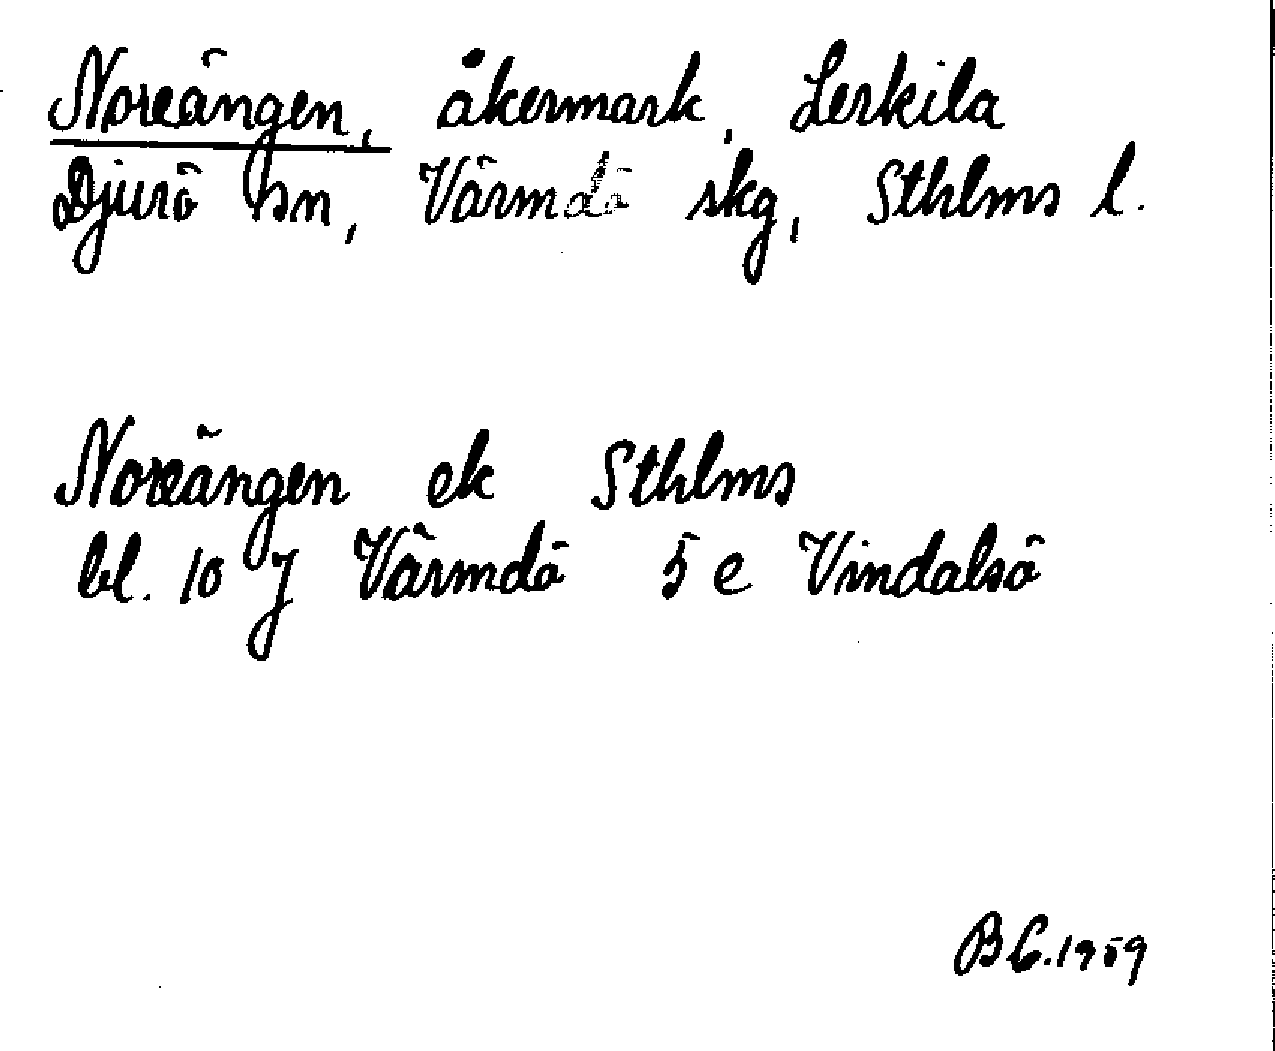 Noreängen, åkermark, Lerkila
Djurö sn, Värmdö skg, Sthlms l.
Noreängen ek Sthlms
bl. 10 J Värmdö 5 e Vindalsö
B C. 1959